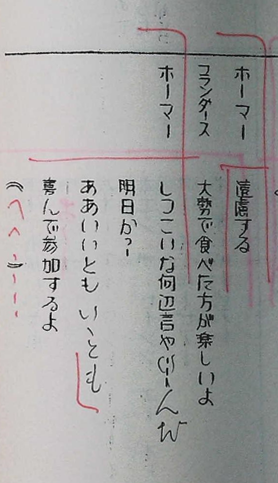 ホーマー 遠慮する
フランダース 大勢で食べた方が楽しいよ
ホーマー しつこいな何辺言や
明日か?
ああいいともいいとも
喜んで参加するよ